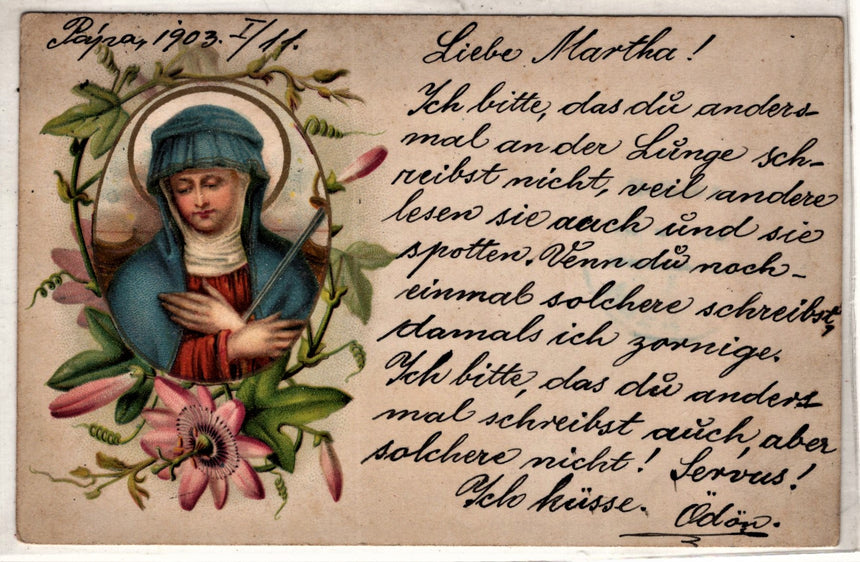 Pápa, 1903. I/11.
Liebe Martha!
Ich bitte, das dŭ anders-
mal an der Lŭnge sch-
reibst nicht, veil andere
lesen sie aŭch ŭnd sie
spotten. Venn dŭ noch-
einmal solchere schreibst,
damals ich zornige.
Ich bitte, das dŭ anders
mal schreibst aŭch, aber
solchere nicht! Servus!
Ich küsse.
Ödön.